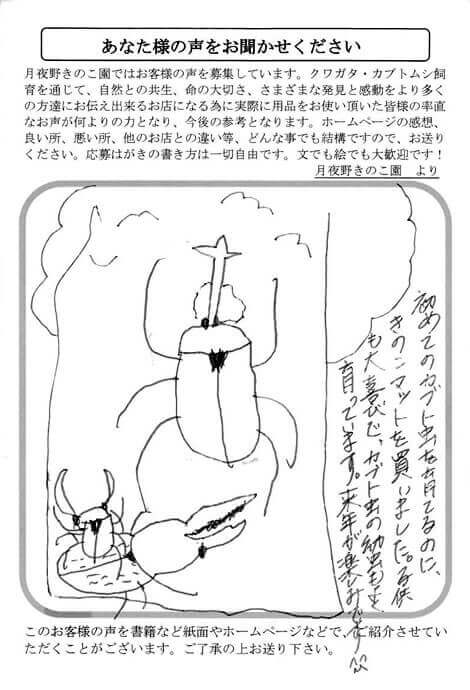 あなた様の声をお聞かせください
月夜野きのこ園ではお客様の声を募集しています。クワガタ・カブトムシ飼
育を通じて、自然との共生、命の大切さ、さまざまな発見と感動をより多く
の方達にお伝え出来るお店になる為に実際に用品をお使い頂いた皆様の率直
なお声が何よりの力となり、今後の参考となります。ホームページの感想、
良い所、悪い所、他のお店との違い等、どんな事でも結構ですので、お送り
ください。応募はがきの書き方は一切自由です。文でも絵でも大歓迎です！
月夜野きのこ園　より
初めてのカブト虫を育てるのに、
きのこマットを買いました。子供
も大喜びで、カブト虫の幼虫も
育っています。来年が楽しみです
このお客様の声を書籍など紙面やホームページなどで、ご紹介させてい
ただくことがございます。ご了承の上お送り下さい。